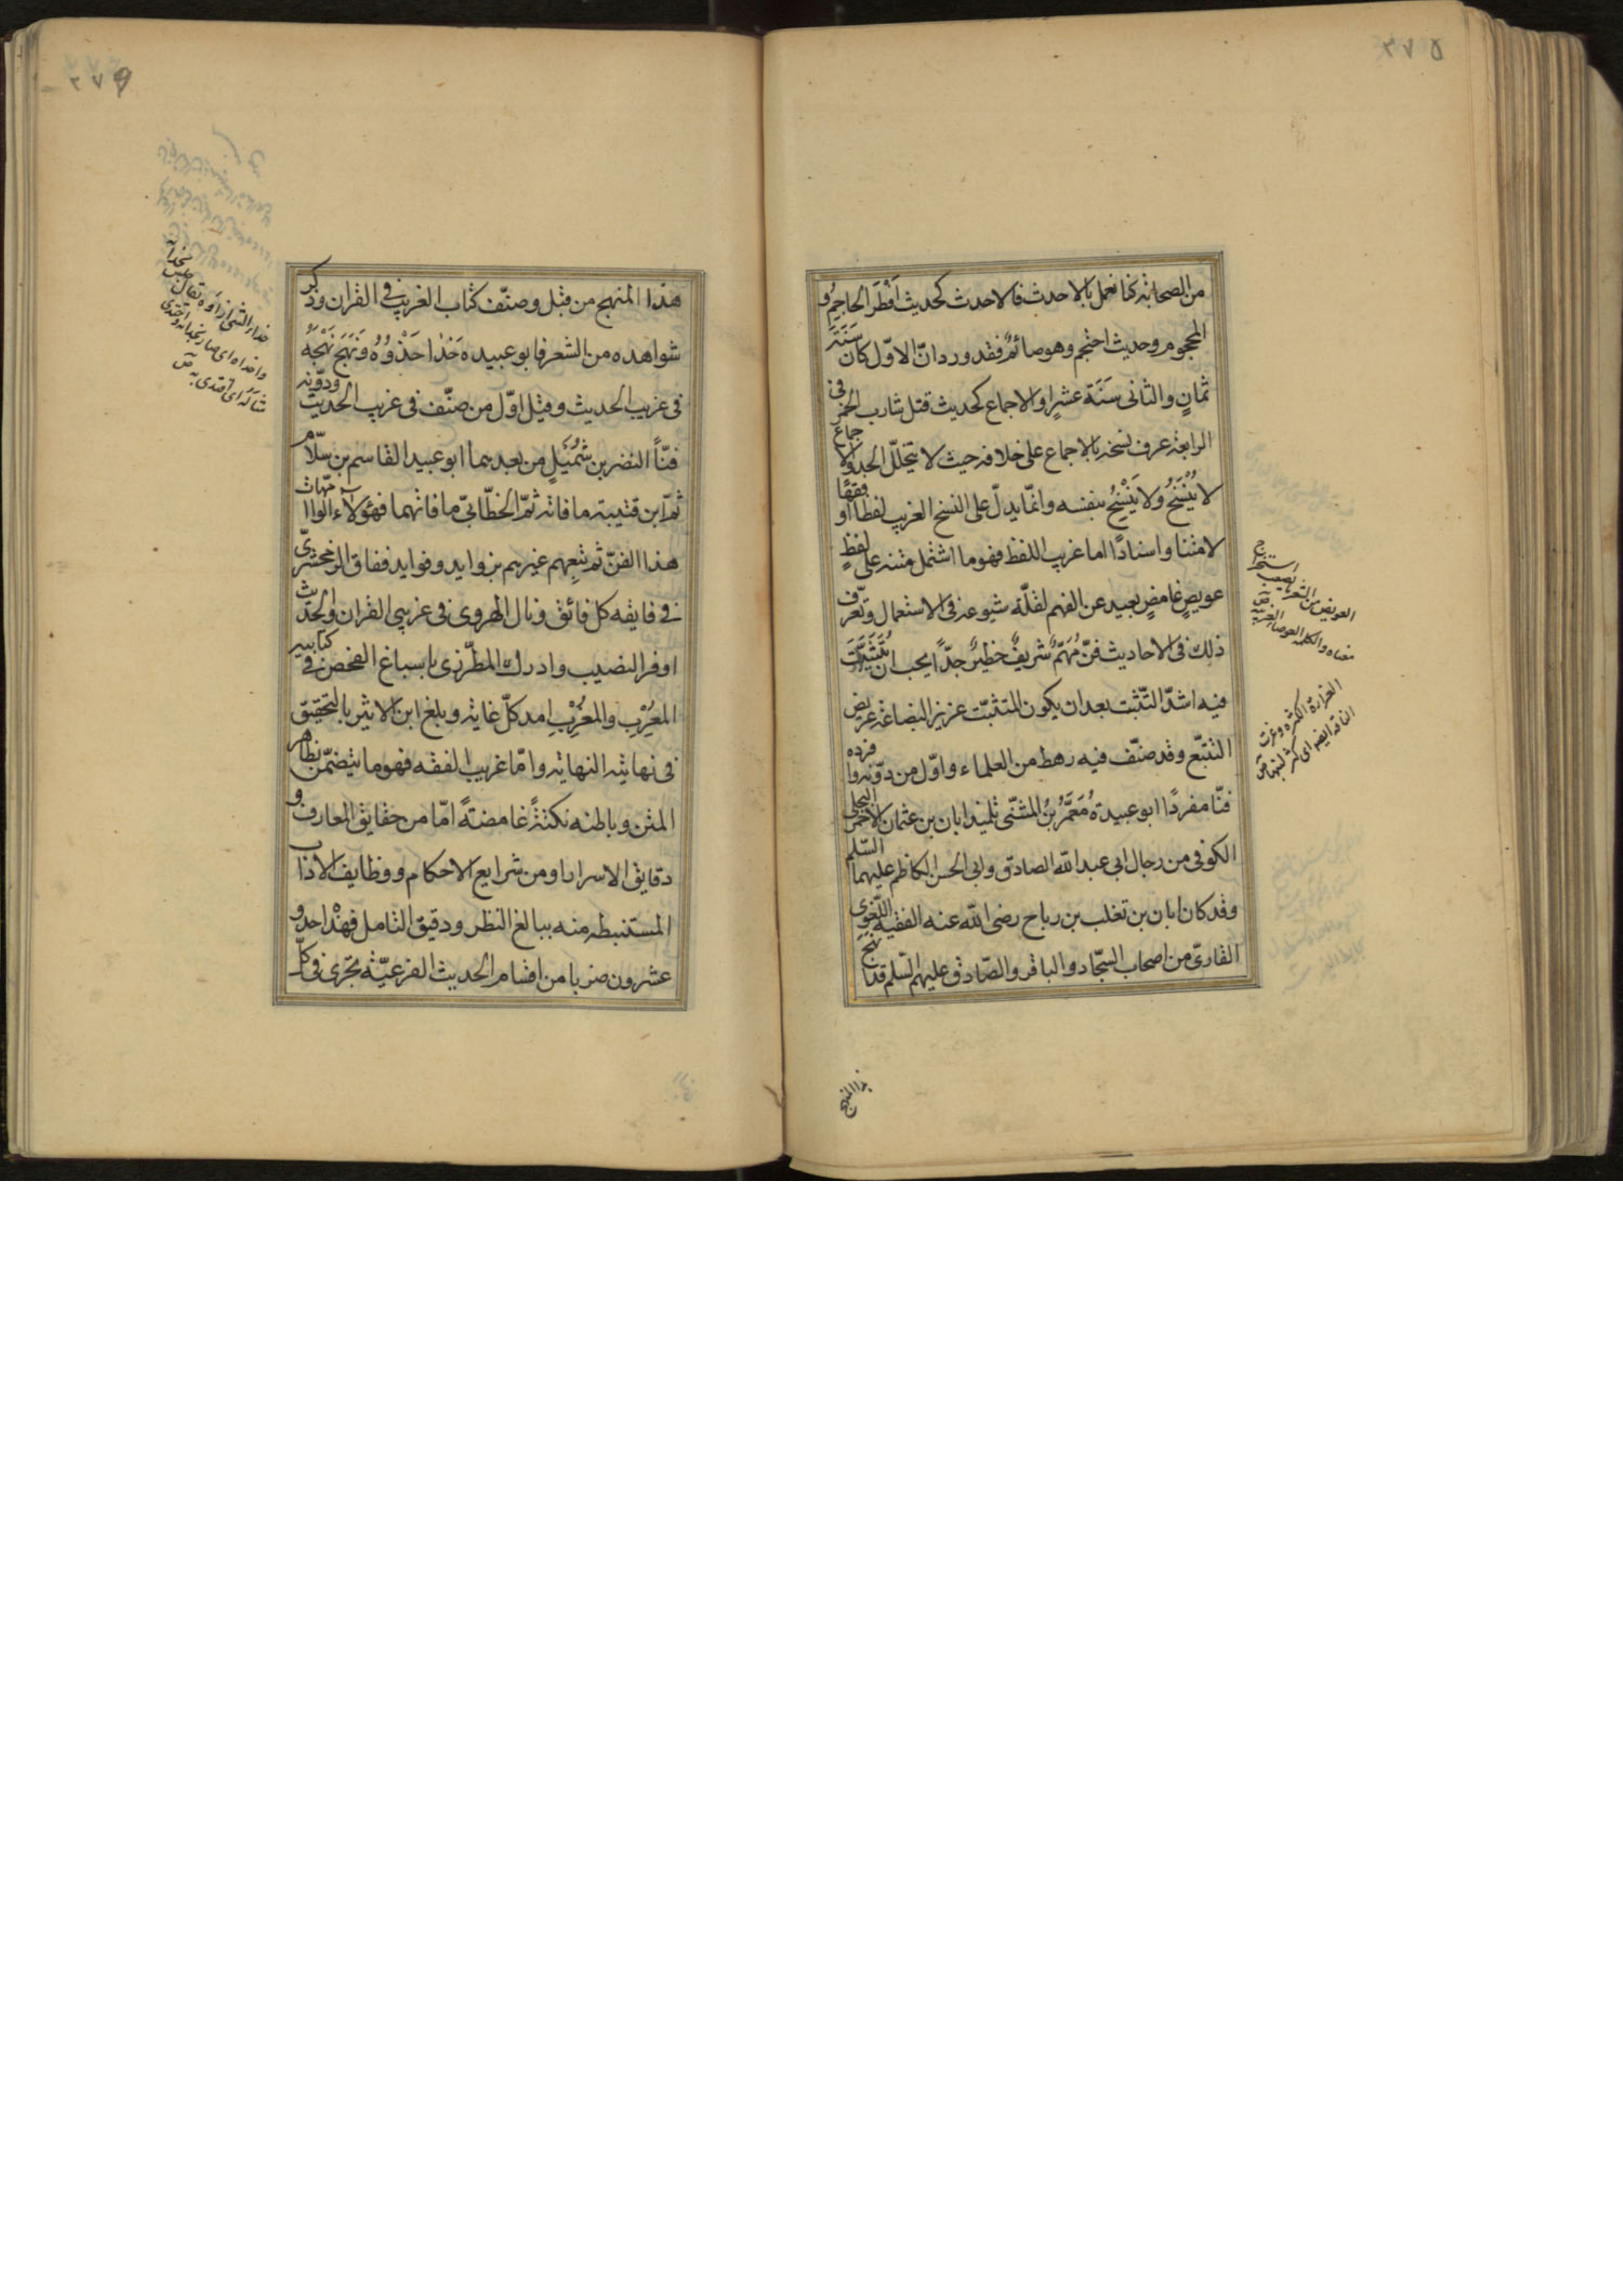 ٢٧٥
من الصحابة كنا نعمل بالاحدث فالاحدث كحديث افطر الحاجم و
المحجوم وحديث احتجم وهو صائم فقد ورد ان الاول كان سنة
ثمان والثاني سنة عشر او الاجماع كحديث قتل شارب الخمر في
الرابعة عرف نسخه بالاجماع على خلافه حيث لا يتخلل الحد والاجماع
لا يُنْسَخُ ولا يَنْسَخُ بنفسه وانما يدل على النسخ الغريب لفظا او فقها
لا متنا واسنادًا اما غريب اللفظ فهو ما اشتمل متنه على لفظٍ
عويصٍ غامضٍ بعيد عن الفهم لقلة شيوعه في الاستعمال وتعرّف
ذلك في الاحاديث فنّ مُهِمّ شريفٌ خطيرٌ جدًّا يجب ان يتثبت
فيه اشدّ التثبت بعد ان يكون المتثبت غزير البضاعة عريض
التتبّع وقد صنّف فيه رهط من العلماء واوّل من دوّنه وافرده
فنّا مفردًا ابو عبيدة مُعَمَّرُ بنُ المثنّى تلميذ ابان بن عثمان الاحمر البجلي
الكوفي من رجال ابي عبد الله الصادق وابي الحسن الكاظم عليهما السّلم
وقد كان ابان بن تغلب بن رباح رضى الله عنه الفقيه اللّغوي
القارئ من اصحاب السجّاد والباقر والصّادق عليهم السّلم قد نهج
العويص من الشعر ما يصعب استخراج
معناه والكلمة العوصاء الغريبة ص
الغزارة الكثرة وغزرت
الناقة ايضا اى كثر لبنها ص
هذا المنهج
٢٧٦
هذا المنهج من قبل وصنّف كتاب الغريب في القران وذكر
شواهده من الشعر فابو عبيده حَذٰا حَذْوَهُ وَنَهَجَ نَهْجَهُ
في غريب الحديث وقيل اوّل من صنّف في غريب الحديث ودوّنه
فنّاً النضر بن شُمَيْلٍ من بعدهما ابو عبيد القاسم بن سلّام
ثم ابن قتيبة ما فاته ثمّ الخطّابيّ ما فاتهما فهؤلاء الّوا امّهات
هذا الفنّ ثم تبعهم غيرهم بزوايد وفوايد ففاق الزمخشريّ
في فايقه كل فائق ونال الهروى في غريبي القران والحديث
اوفر النصيب وادرك المطرّزى باسباغ الفحص في كتابيه
المعْرِب والمغْرِبِ امد كلّ غاية وبلغ ابن الاثير بالتحقيق
في نهايته النهاية وامّا غريب الفقه فهو ما يتضمّن نظاهر
المتن وباطنه نكتةً غامضةً امّا من حقايق المعارف و
دقايق الاسرار او من شرايع الاحكام ووظايف الاداب
المستنبطة منه ببالغ النظر ودقيق التامل فهذا احد و
عشرون ضربا من اقسام الحديث الفرعيّة تجرى في كلّ
حذاء الشئ ازاؤه يقال
واحذاه اى صار بحذائه واحتذى
مثاله اى اقتدى به ص